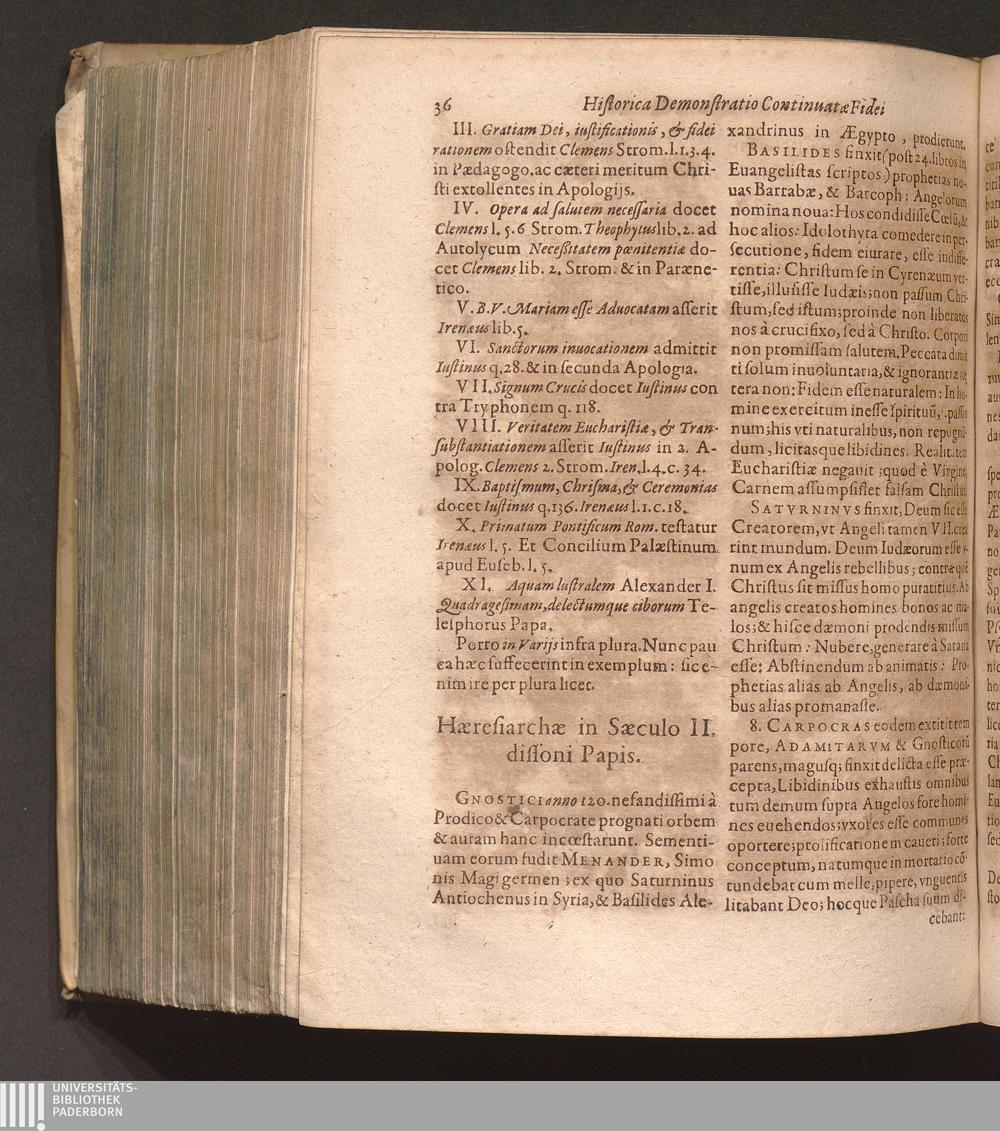 36 Historica Demonstratio Continuatæ Fidei
III. Gratiam Dei, iustificationis, & fidei
rationem ostendit Clemens Strom.l.1.3.4.
in Pædagogo,ac cæteri meritum Chri-
sti extollentes in Apologijs.
IV. Opera ad salutem necessaria docet
Clemens l. 5.6 Strom. Theophytus lib.2. ad
Autolycum Necessitatem pœnitentiæ do-
cet Clemens lib. 2. Strom. & in Paræne-
tico.
V. B.V. Mariam esse Aduocatam asserit
Irenæus lib.5.
VI. Sanctorum inuocationem admittit
Iustinus q.28. & in secunda Apologia.
VII. Signum Crucis docet Iustinus con
tra Tryphonem q. 118.
VIII. Veritatem Eucharistiæ, & Tran-
substantiationem asserit Iustinus in 2. A-
polog. Clemens 2. Strom. Iren.l.4.c. 34.
IX. Baptismum, Chrisma, & Ceremonias
docet Iustinus q.136. Irenæus l.1.c.18.
X. Primatum Pontificum Rom. testatur
Irenæus l. 5. Et Concilium Palæstinum
apud Euseb. l. 5.
XI. Aquam lustralem Alexander I.
Quadragesimam, delectumque ciborum Te-
lesphorus Papa.
Porro in Varijs infra plura. Nunc pau
ca hæc suffecerint in exemplum: sic e-
nim ire per plura licet.
Hæresiarchæ in Sæculo II.
dissoni Papis.
GNOSTICI anno 120. nefandissimi à
Prodico & Carpocrate prognati orbem
& auram hanc incœstarunt. Sementi-
uam eorum fudit MENANDER, Simo
nis Magi germen ; ex quo Saturninus
Antiochenus in Syria, & Basilides Ale-
xandrinus in Ægypto , prodierunt.
BASILIDES finxit (post 24. libros in
Euangelistas scriptos) prophetias no-
uas Barrabæ, & Barcoph: Angelorum
nomina noua: Hos condidisse Cœlũ, &
hoc alios: Idolothyta comedere in per-
secutione, fidem eiurare, esse indiffe-
rentia: Christum se in Cyrenæum ver-
tisse, illusisse Iudæis; non passum Chri-
stum, sed istum; proinde non liberatos
nos à crucifixo, sed à Christo. Corpori
non promissam salutem. Peccata dimit
ti solum inuoluntaria, & ignorantiæ
tera non: Fidem esse naturalem: In ho-
mine exercitum inesse spirituũ,
num; his vti naturalibus, non repugnã-
dum, licitasque libidines. Realitatem
Eucharistiæ negauit ; quod è Virgine
Carnem assumpsisset falsam Christus.
SATVRNINVS finxit, Deum sic esse
Creatorem, vt Angeli tamen VII. crea
rint mundum. Deum Iudæorum esse v-
num ex Angelis rebellibus; contra quẽ
Christus sit missus homo putatitius. Ab
angelis creatos homines bonos ac ma-
los; & hisce dæmoni prodendis missum
Christum : Nubere, generare à Satana
esse: Abstinendum ab animatis : Pro-
phetias alias ab Angelis, ab dæmoni-
bus alias promanasse.
8. CARPOCRAS eodem extitit tem
pore, ADAMITARVM & Gnosticorũ
parens, magusq; finxit delicta esse præ-
cepta, Libidinibus exhaustis omnibus
tum demum supra Angelos fore homi-
nes euehendos; vxores esse communes
oportere; prolificationem caueri; forte
conceptum, natumque in mortario cõ-
tundebat cum melle, pipere, vnguentis
litabant Deo; hocque Pascha suum di-
cebant:
UNIVERSITÄTS-
BIBLIOTHEK
PADERBORN